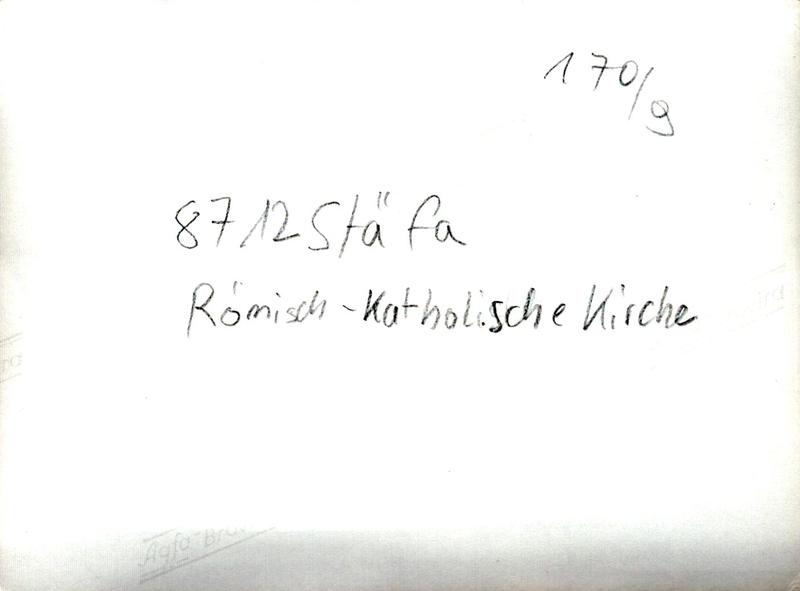 170/9
8712 Stäfa
Römisch-Katholische Kirche
Agfa-Bro